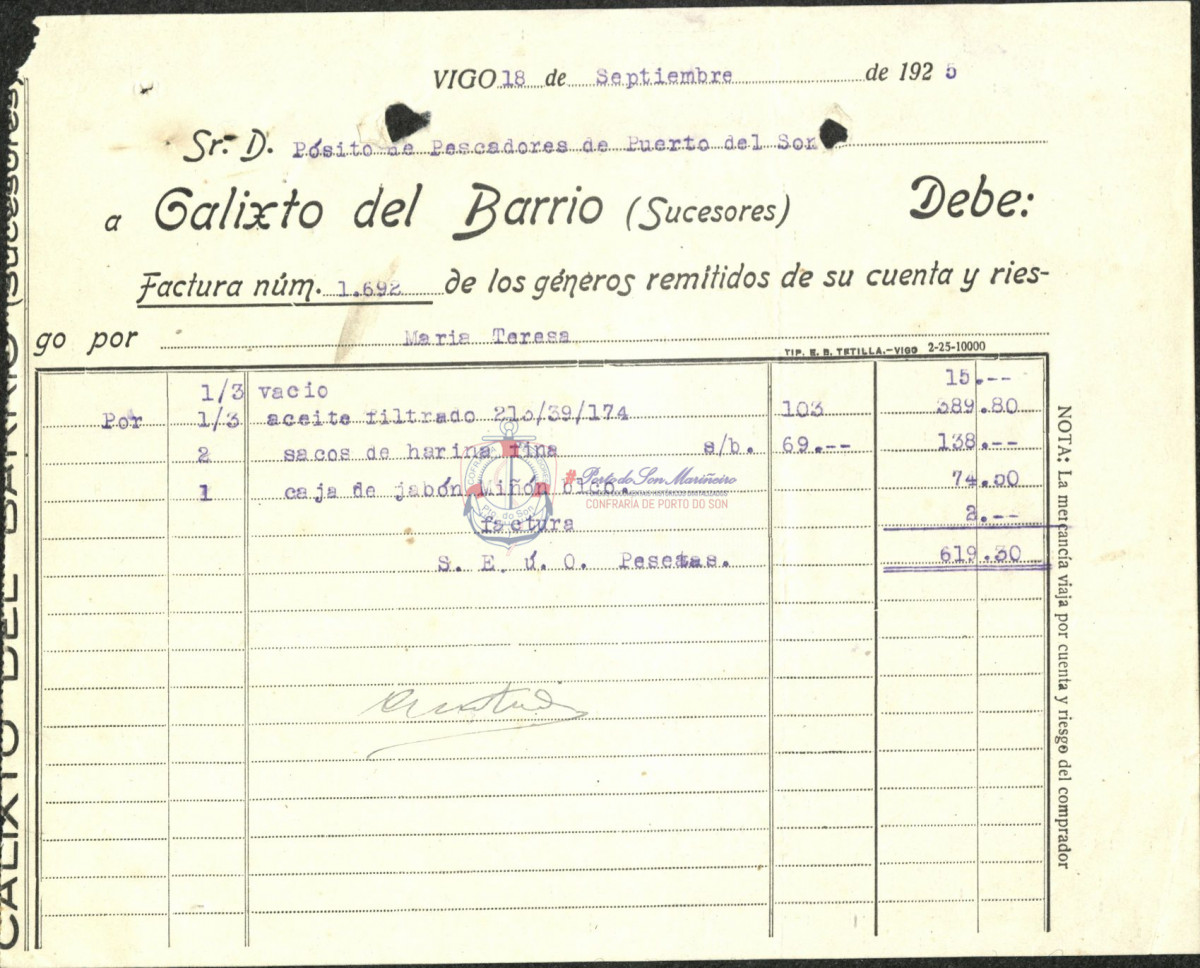 VIGO 18 de Septiembre de 1925
Sr. D. Pósito de Pescadores de Puerto del Son
a Calixto del Barrio (Sucesores) Debe:
Factura núm. 1.692 de los géneros remitidos de su cuenta y ries-
go por Maria Teresa
TIP. E. B. TETILLA.-VIGO 2-25-10000
1/3 vacio 15.--
Por 1/3 aceite filtrado 213/39/174 103 389.80
2 sacos de harina fina s/b. 69.-- 138.--
1 caja de jabón Miñón 74.50
factura 2.--
S. E. ú. O. Pesetas. 619.30
NOTA: La mercancía viaja por cuenta y riesgo del comprador
CALIXTO DEL BARRIO (Sucesores)
#Porto do Son Mariñeiro
CONFRARÍA DE PORTO DO SON
Pto. do Son